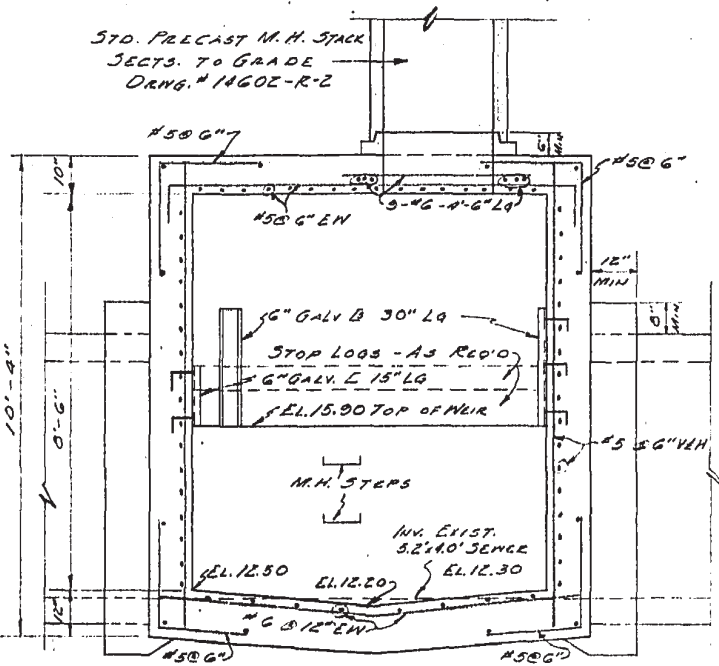 STD. PRECAST M.H. STACK
SECTS. TO GRADE
DRWG. # 14602-R-2
#5@ 6"
6"
MIN
#5@ 6"
10"
#5@ 6" EW
3-#6-4'-6" LG
12"
MIN
8"
MIN
6" GALV 30" LG
STOP LOGS - AS REQ'D
6" GALV. [ 15" LG
EL.15.90 TOP OF WEIR
10'-4"
8'-6"
#5 @ 6" V&H
M.H. STEPS
INV. EXIST.
5.2'x4.0' SEWER
EL.12.50
EL.12.20
EL.12.30
12"
#6 @ 12" EW
#5@ 6"
#5@ 6"